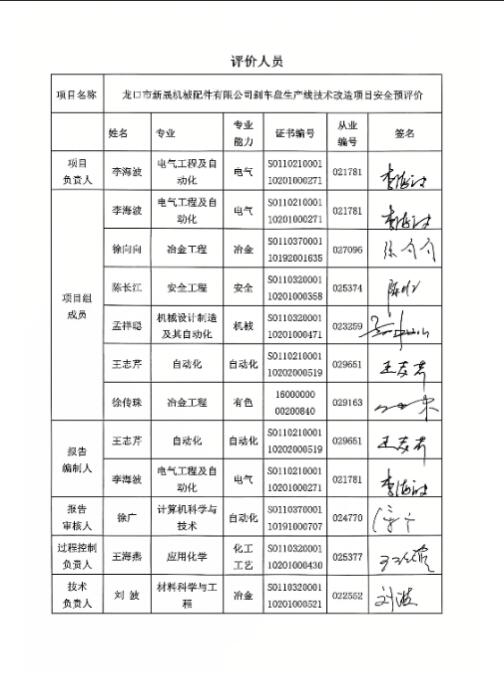 评价人员
项目名称 龙口市新晟机械配件有限公司刹车盘生产线技术改造项目安全预评价
姓名 专业 专业能力 证书编号 从业编号 签名
项目负责人 李海波 电气工程及自动化 电气 S011021000110201000271 021781 李海波
项目组成员 李海波 电气工程及自动化 电气 S011021000110201000271 021781 李海波
徐向向 冶金工程 冶金 S011037000110192001635 027096 徐向向
陈长江 安全工程 安全 S011032000110201000358 025374
孟祥聪 机械设计制造及其自动化 机械 S011032000110201000471 023259
王志芹 自动化 自动化 S011021000110202000519 029651 王志芹
徐传珠 冶金工程 有色 1600000000200840 029163
报告编制人 王志芹 自动化 自动化 S011021000110202000519 029651 王志芹
李海波 电气工程及自动化 电气 S011021000110201000271 021781 李海波
报告审核人 徐广 计算机科学与技术 自动化 S011037000110191000707 024770
过程控制负责人 王海燕 应用化学 化工工艺 S011032000110201000430 025377
技术负责人 刘波 材料科学与工程 冶金 S011032000110201000521 022552 刘波